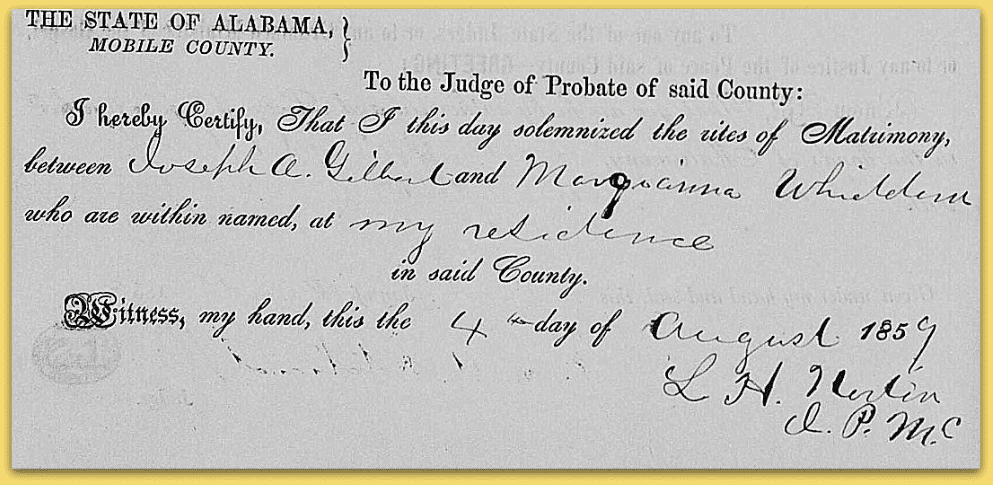 THE STATE OF ALABAMA, }
MOBILE COUNTY.
To the Judge of Probate of said County:
I hereby Certify, That I this day solemnized the rites of Matrimony,
between Joseph A. Gilbert and Marquianna Whidden
who are within named, at my residence
in said County.
Witness, my hand, this the 4th day of August 1859
L H. Norton
J. P. M. C